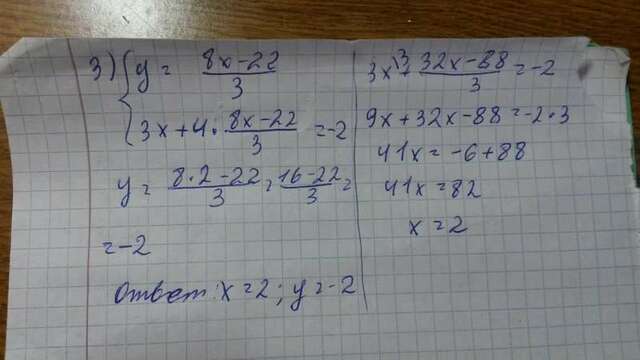 3) { y = (8x-22)/3
3x+4·(8x-22)/3 = -2
y = (8·2-22)/3 = (16-22)/3 =
= -2
Ответ: x=2; y=-2
3x\3 + (32x-88)/3 = -2
9x+32x-88=-2·3
41x = -6+88
41x=82
x=2